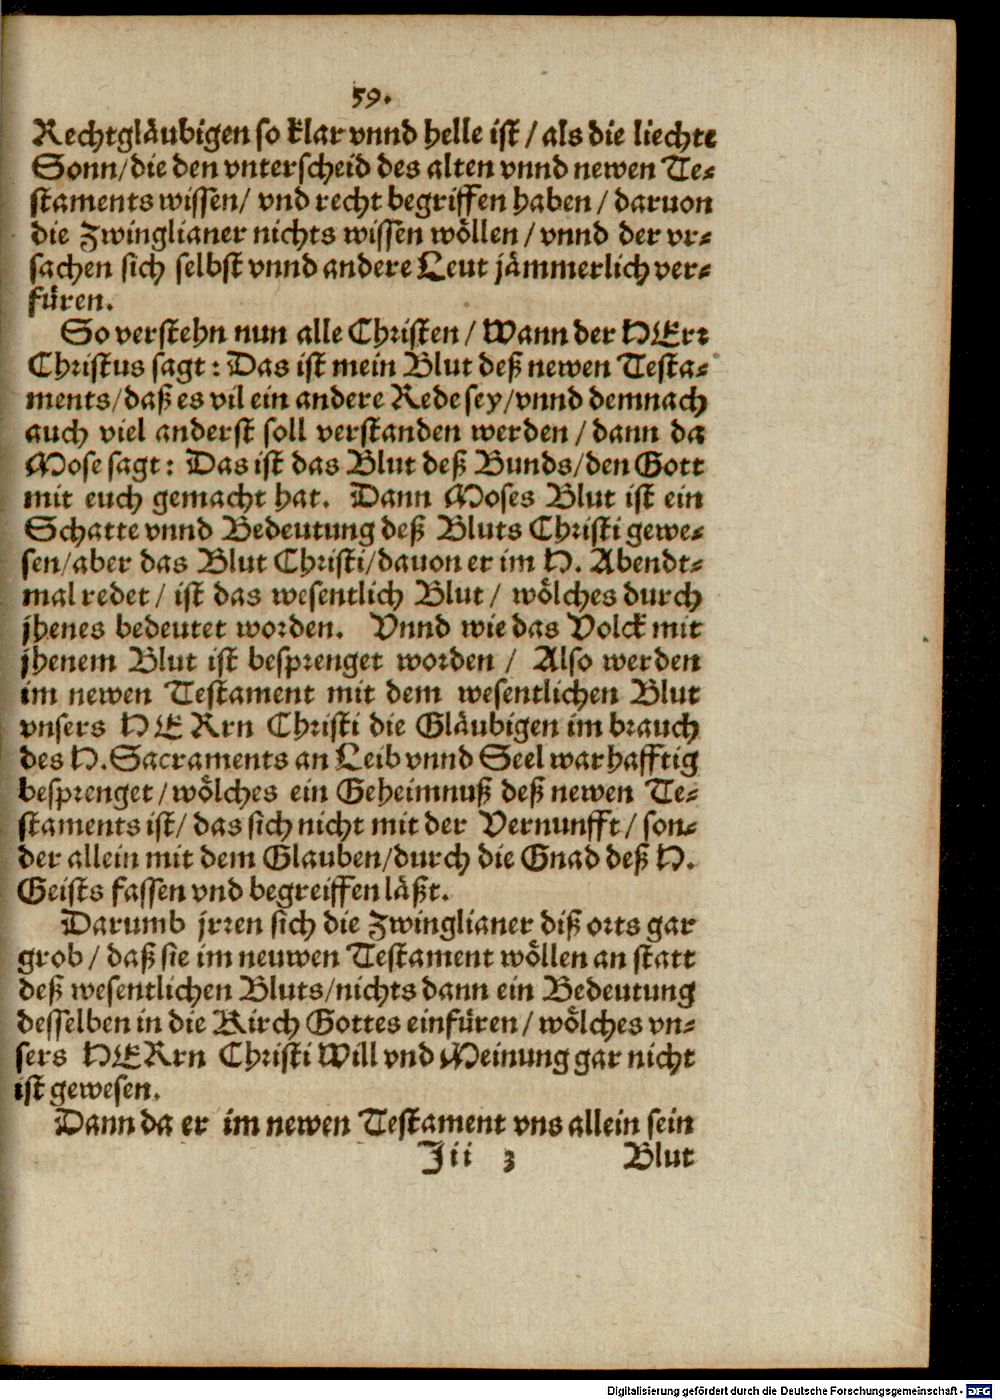 59.
Rechtgläubigen so klar vnnd helle ist / als die liechte
Sonn/die den vnterscheid des alten vnnd newen Te-
staments wissen/ vnd recht begriffen haben / daruon
die Zwinglianer nichts wissen wöllen / vnnd der vr-
sachen sich selbst vnnd andere Leut jämmerlich ver-
füren.
So verstehn nun alle Christen / Wann der HErr
Christus sagt : Das ist mein Blut deß newen Testa-
ments/daß es vil ein andere Rede sey/vnnd demnach
auch viel anderst soll verstanden werden / dann da
Mose sagt : Das ist das Blut deß Bunds/den Gott
mit euch gemacht hat. Dann Moses Blut ist ein
Schatte vnnd Bedeutung deß Bluts Christi gewe-
sen/aber das Blut Christi/dauon er im H. Abendt-
mal redet / ist das wesentlich Blut / wölches durch
jhenes bedeutet worden. Vnnd wie das Volck mit
jhenem Blut ist besprenget worden / Also werden
im newen Testament mit dem wesentlichen Blut
vnsers HERrn Christi die Gläubigen im brauch
des H. Sacraments an Leib vnnd Seel warhafftig
besprenget / wölches ein Geheimnuß deß newen Te-
staments ist/ das sich nicht mit der Vernunfft / son-
der allein mit dem Glauben/durch die Gnad deß H.
Geists fassen vnd begreiffen läßt.
Darumb jrren sich die Zwinglianer diß orts gar
grob / daß sie im neuwen Testament wöllen an statt
deß wesentlichen Bluts/nichts dann ein Bedeutung
desselben in die Kirch Gottes einfüren / wölches vn-
sers HERrn Christi Will vnd Meinung gar nicht
ist gewesen.
Dann da er im newen Testament vns allein sein
Jii 3 Blut
Digitalisierung gefördert durch die Deutsche Forschungsgemeinschaft - DFG